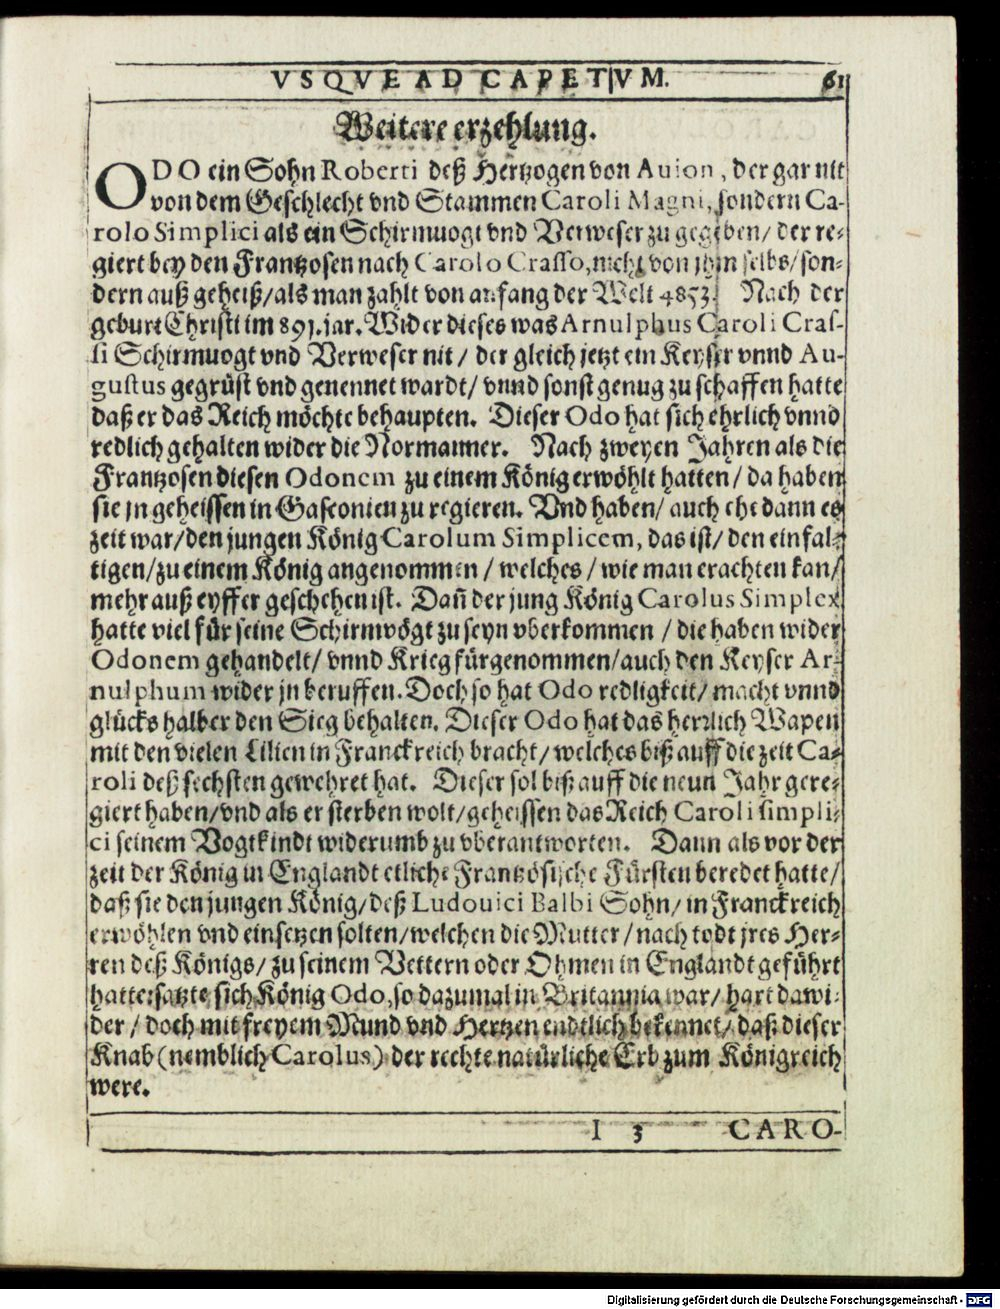 VSQVE AD CAPETVM. 61
Weitere erzehlung.
ODO ein Sohn Roberti deß Hertzogen von Auion, der gar nit
von dem Geschlecht vnd Stammen Caroli Magni, sondern Ca-
rolo Simplici als ein Schirmuogt vnd Verweser zu gegeben/ der re-
giert bey den Frantzosen nach Carolo Crasso, nicht von jhm selbs/ son-
dern auß geheiß/ als man zahlt von anfang der Welt 4853. Nach der
geburt Christi im 891. jar. Wider dieses was Arnulphus Caroli Cras-
si Schirmuogt vnd Verweser nit/ der gleich jetzt ein Keyser vnnd Au-
gustus gegrüst vnd genennet wardt/ vnnd sonst genug zu schaffen hatte
daß er das Reich möchte behaupten. Dieser Odo hat sich ehrlich vnnd
redlich gehalten wider die Normanner. Nach zweyen Jahren als die
Frantzosen diesen Odonem zu einem König erwöhlt hatten/ da haben
sie jn geheissen in Gasconien zu regieren. Vnd haben/ auch ehe dann es
zeit war/ den jungen König Carolum Simplicem, das ist/ den einfal-
tigen/ zu einem König angenommen/ welches/ wie man erachten kan/
mehr auß eyffer geschehen ist. Dañ der jung König Carolus Simplex
hatte viel für seine Schirmvögt zu seyn vberkommen/ die haben wider
Odonem gehandelt/ vnnd Krieg fürgenommen/ auch den Keyser Ar-
nulphum wider jn beruffen. Doch so hat Odo redligkeit/ macht vnnd
glücks halber den Sieg behalten. Dieser Odo hat das herrlich Wapen
mit den vielen Lilien in Franckreich bracht/ welches biß auff die zeit Ca-
roli deß sechsten gewehret hat. Dieser sol biß auff die neun Jahr gere-
giert haben/ vnd als er sterben wolt/ geheissen das Reich Caroli simpli-
ci seinem Vogtkindt widerumb zu vberantworten. Dann als vor der
zeit der König in Englandt etliche Frantzösische Fürsten beredet hatte/
daß sie den jungen König/ deß Ludouici Balbi Sohn/ in Franckreich
erwöhlen vnd einsetzen solten/ welchen die Mutter/ nach todt jres Her-
ren deß Königs/ zu seinem Vettern oder Ohmen in Englandt geführt
hatte: satzte sich König Odo, so dazumal in Britannia war/ hart dawi-
der/ doch mit freyem Mund vnd Hertzen endtlich bekennet/ daß dieser
Knab (nemblich Carolus) der rechte natürliche Erb zum Königreich
were.
I 3 CARO-
Digitalisierung gefördert durch die Deutsche Forschungsgemeinschaft - DFG